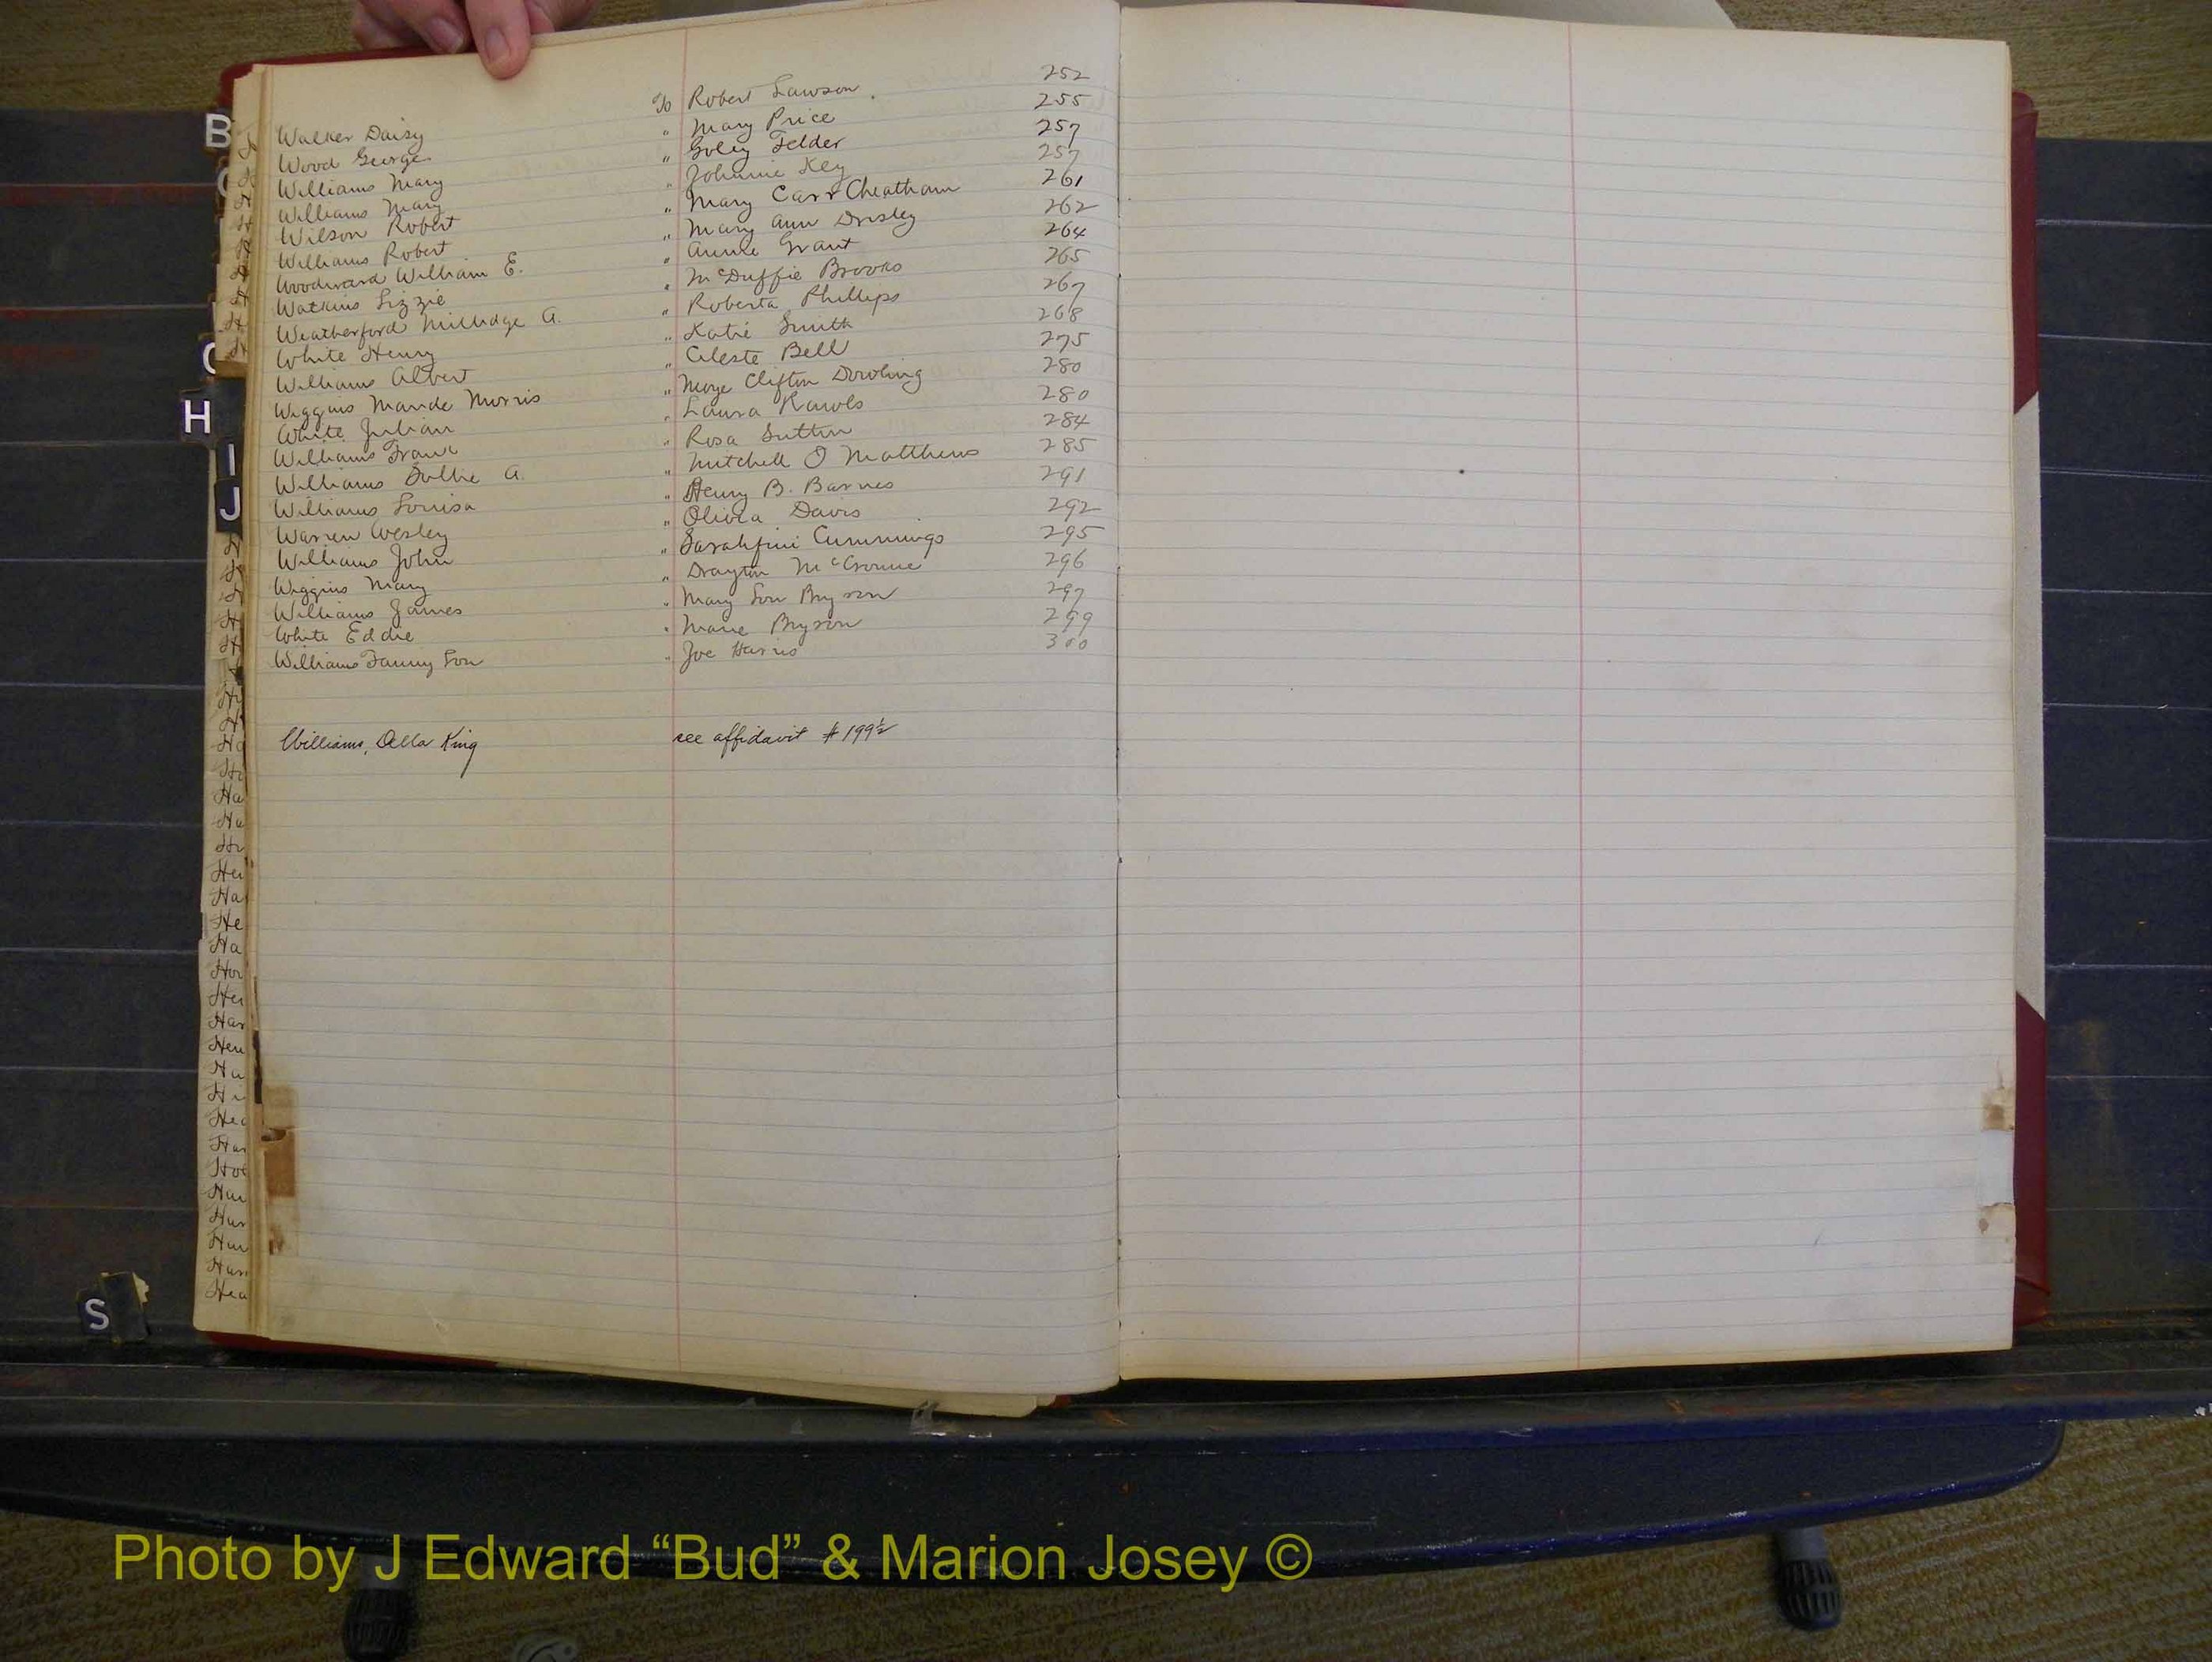 Walker Daisy To Robert Lawson 252
Wood George " Mary Price 255
Williams Mary " Goley Felder 257
Williams Mary " Johnnie Key 257
Wilson Robert " Mary Carr Cheatham 261
Williams Robert " Mary Ann Drisley 262
Woodward William E. " Annie Grant 264
Watkins Lizzie " McDuffie Brooks 265
Weatherford Milledge A. " Roberta Phillips 267
White Henry " Katie Smith 268
Williams Albert " Celeste Bell 275
Wiggins Maude Morris " Moye Clifton Dowling 280
White Julian " Laura Rawls 280
Williams Frank " Rosa Sutton 284
Williams Sallie A. " Mitchell O Matthews 285
Williams Louisa " Henry B. Barnes 291
Warren Wesley " Olivia Davis 292
Williams John " Cummings 295
Wiggins Mary " Drayton 296
Williams James " Mary Lou Bryson 297
White Eddie " Marie Bryson 299
Williams Fanny Lou " Joe Harris 300
Williams, Della King see affidavit # 199½
B
H
I
J
S
Photo by J Edward “Bud” & Marion Josey ©